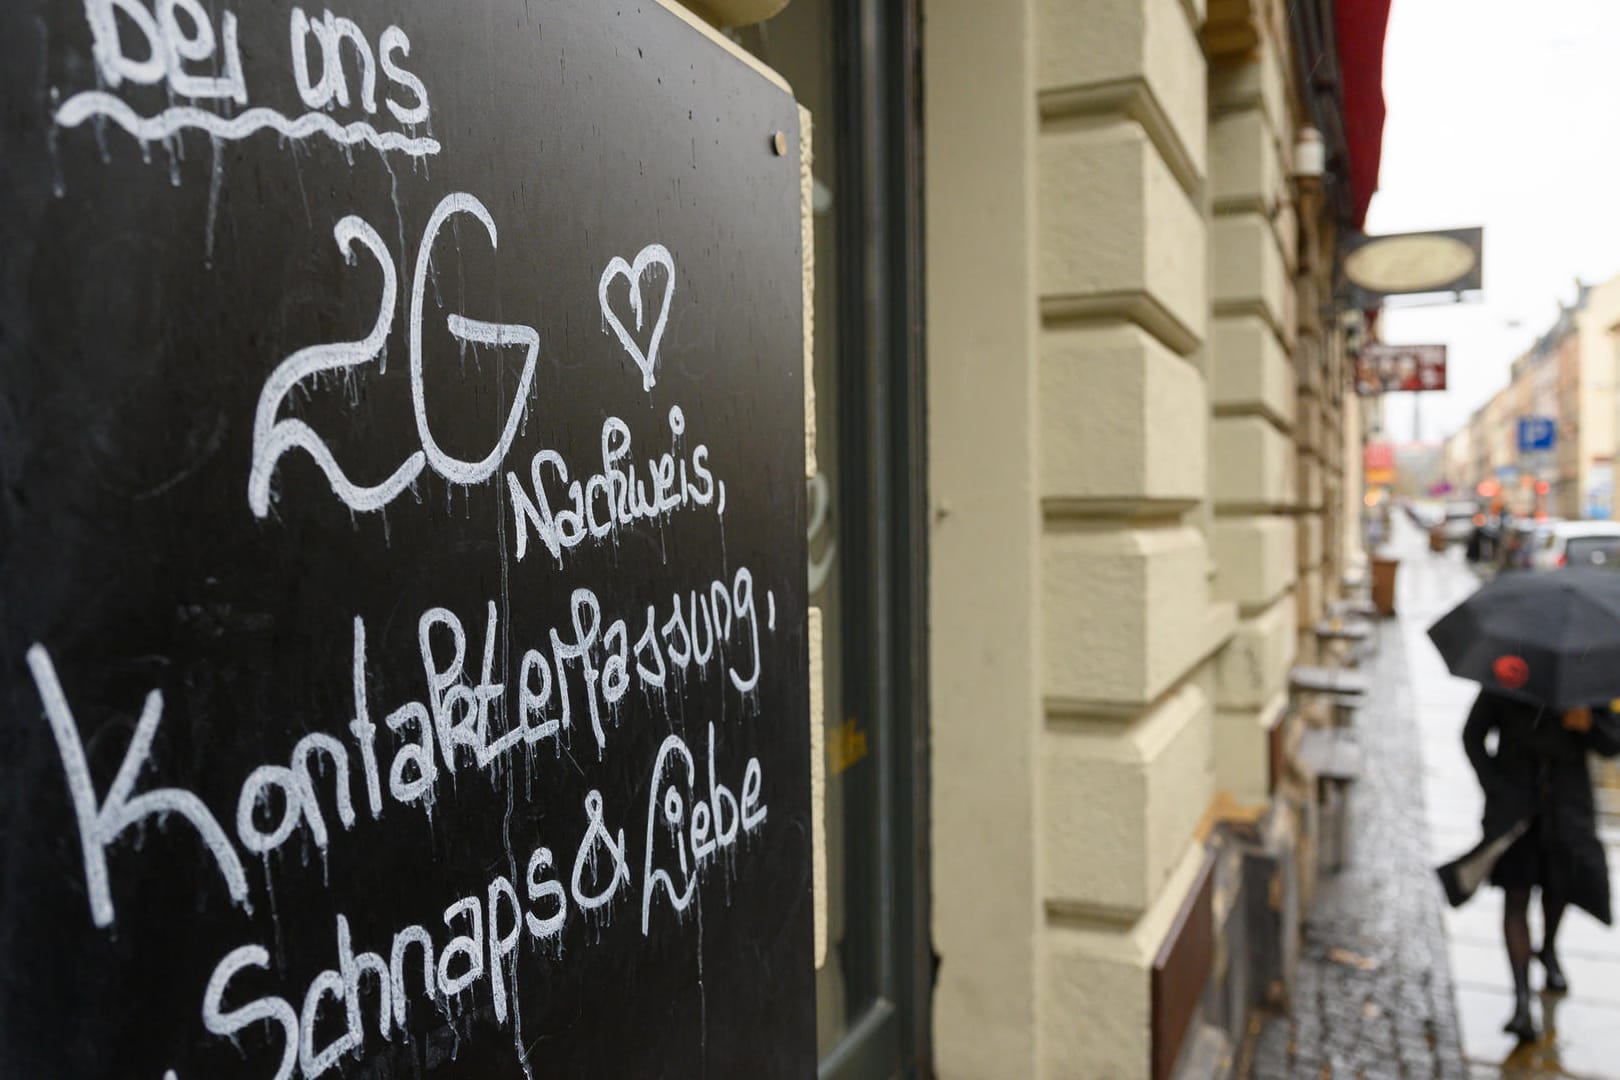 Bei uns
2G
Nachweis,
Kontakterfassung,
Schnaps & Liebe
P